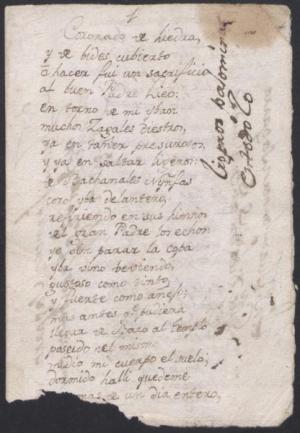 Coronado de hiedra,
y de bides cubierto
a hacer fui un sacrificio
al buen Padre Lieo:
en torno de mi yban
muchos Zagales diestros,
ya en tañer presurosos
y ya en saltar ligeros:
de Bachanales Ninfas
coro yba delantero,
repitiendo en sus hinnos
el gran Padre
parar la
yba vino beviendo,
gustoso como tinto
y fuerte como añejo;
mas antes q pudiera
llegar de Baco al templo
poseido del mismo
midio mi cuerpo el suelo;
dormido halli quedeme
mas de un dia entero,